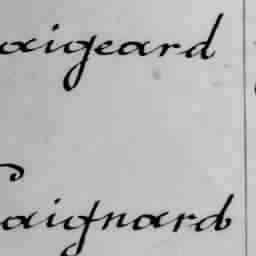 aigeard
aignard